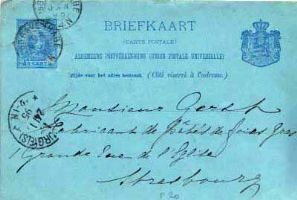 BRIEFKAART
(CARTE POSTALE)
ALGEMEENE POSTVEREENIGING (UNION POSTALE UNIVERSELLE)
Zijde voor het adres bestemd. (Côté réservé à l'adresse.)
Monsieur Gerst
Fabricant de Pâtés de Foies Gras
1 Grande Rue de l'Eglise
Strasbourg